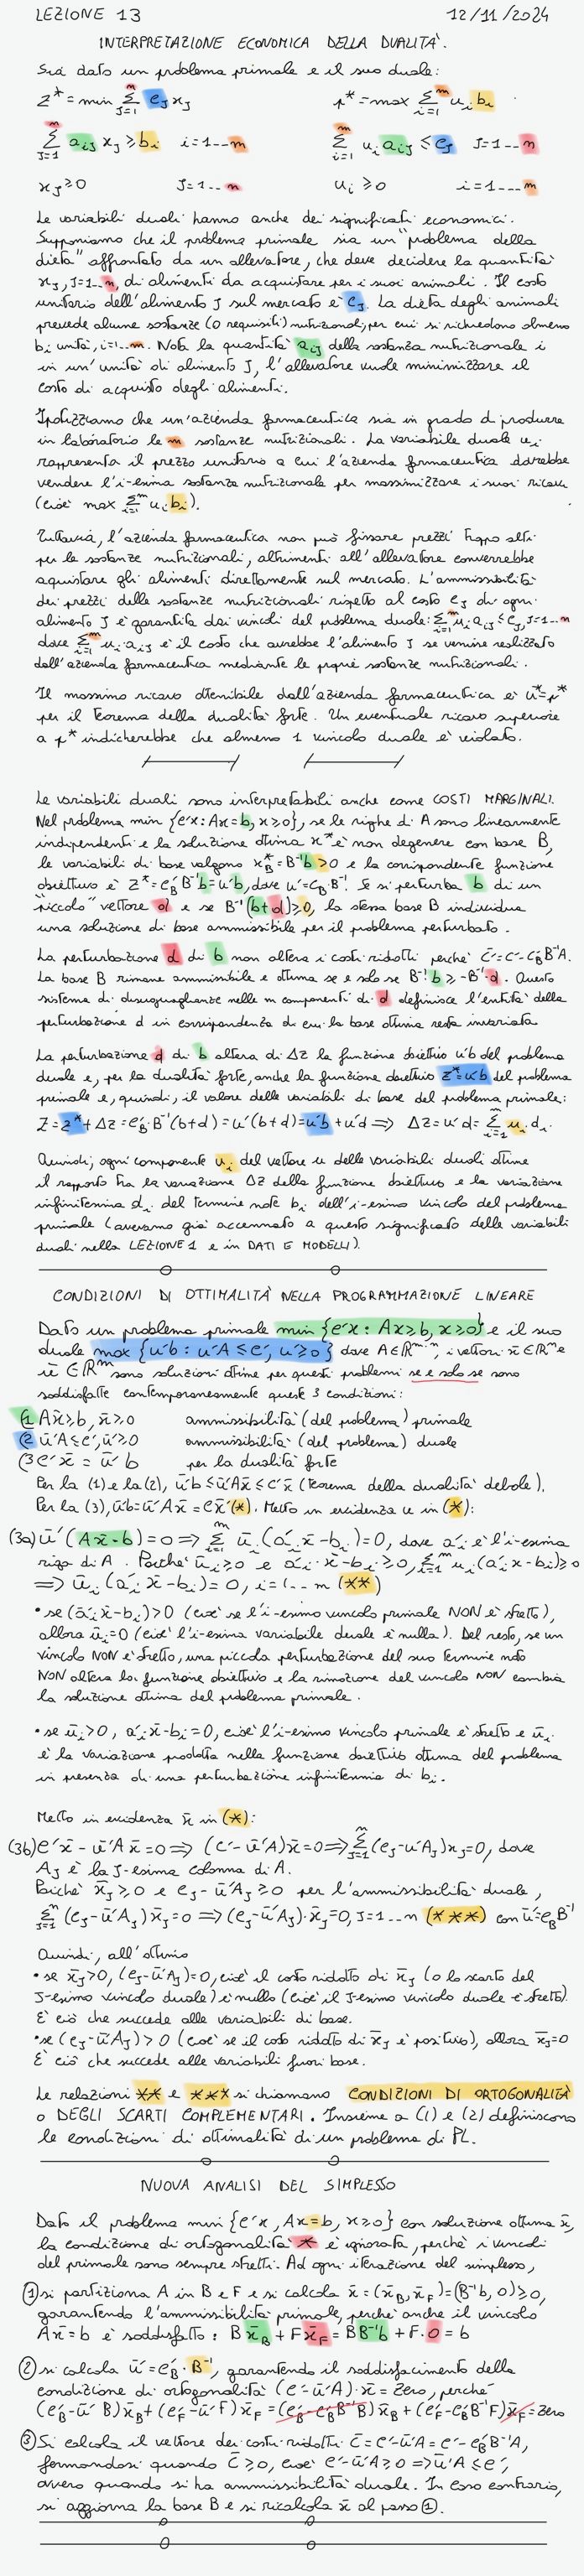 LEZIONE 13 12/11/2024
INTERPRETAZIONE ECONOMICA DELLA DUALITA'.
Sia dato un problema primale e il suo duale:
z* = min Σ_{J=1}^{n} c_J x_J r* = max Σ_{i=1}^{m} u_i b_i
Σ_{J=1}^{n} a_{iJ} x_J ≥ b_i i=1--m Σ_{i=1}^{m} u_i a_{iJ} ≤ c_J J=1--n
x_J ≥ 0 J=1--n u_i ≥ 0 i=1---m
Le variabili duali hanno anche dei significati economici.
Supponiamo che il problema primale sia un "problema della
dieta" affrontato da un allevatore, che deve decidere la quantità
x_J, J=1--n, di alimenti da acquistare per i suoi animali. Il costo
unitario dell'alimento J sul mercato è c_J. La dieta degli animali
prevede alcune sostanze (o requisiti) nutrizionali, per cui si richiedono almeno
b_i unità, i=1---m. Nota la quantità a_{iJ} della sostanza nutrizionale i
in un'unità di alimento J, l'allevatore vuole minimizzare il
costo di acquisto degli alimenti.
Ipotizziamo che un'azienda farmaceutica sia in grado di produrre
in laboratorio le m sostanze nutrizionali. La variabile duale u_i
rappresenta il prezzo unitario a cui l'azienda farmaceutica dovrebbe
vendere l'i-esima sostanza nutrizionale per massimizzare i suoi ricavi
(cioè max Σ_{i=1}^{m} u_i b_i).
Tuttavia, l'azienda farmaceutica non può fissare prezzi troppo alti
per le sostanze nutrizionali, altrimenti all'allevatore converrebbe
acquistare gli alimenti direttamente sul mercato. L'ammissibilità
dei prezzi delle sostanze nutrizionali rispetto al costo c_J di ogni
alimento J è garantita dai vincoli del problema duale: Σ_{i=1}^{m} u_i a_{iJ} ≤ c_J, J=1--n
dove Σ_{i=1}^{m} u_i a_{iJ} è il costo che avrebbe l'alimento J se venisse realizzato
dall'azienda farmaceutica mediante le proprie sostanze nutrizionali.
Il massimo ricavo ottenibile dall'azienda farmaceutica è u*=r*
per il teorema della dualità forte. Un eventuale ricavo superiore
a r* indicherebbe che almeno 1 vincolo duale è violato.
Le variabili duali sono interpretabili anche come COSTI MARGINALI.
Nel problema min {c'x: Ax=b, x≥0}, se le righe di A sono linearmente
indipendenti e la soluzione ottima x* è non degenere con base B,
le variabili di base valgono x*_B = B⁻¹b > 0 e la corrispondente funzione
obiettivo è z* = c'_B B⁻¹b = u'b, dove u' = c_B B⁻¹. Se si perturba b di un
"piccolo" vettore d e se B⁻¹(b+d) ≥ 0, la stessa base B individua
una soluzione di base ammissibile per il problema perturbato.
La perturbazione d di b non altera i costi ridotti perché c̄' = c' - c'_B B⁻¹A.
La base B rimane ammissibile e ottima se e solo se B⁻¹b ≥ -B⁻¹d. Questo
sistema di disuguaglianze nelle m componenti di d definisce l'entità della
perturbazione d in corrispondenza di cui la base ottima resta invariata
La perturbazione d di b altera di Δz la funzione obiettivo u'b del problema
duale e, per la dualità forte, anche la funzione obiettivo z*=u'b del problema
primale e, quindi, il valore delle variabili di base del problema primale:
z = z* + Δz = c'_B B⁻¹(b+d) = u'(b+d) = u'b + u'd ⟹ Δz = u'd = Σ_{i=1}^{m} u_i d_i.
Quindi, ogni componente u_i del vettore u delle variabili duali ottime
il rapporto tra la variazione Δz della funzione obiettivo e la variazione
infinitesima d_i del termine noto b_i dell'i-esimo vincolo del problema
primale (avevamo già accennato a questo significato delle variabili
duali nella LEZIONE 1 e in DATI E MODELLI).
CONDIZIONI DI OTTIMALITA' NELLA PROGRAMMAZIONE LINEARE
Dato un problema primale min {c'x: Ax≥b, x≥0} e il suo
duale max {u'b: u'A ≤ c', u'≥0} dove A∈ℝ^{m·n}, i vettori x̄∈ℝⁿ e
ū∈ℝᵐ sono soluzioni ottime per questi problemi se e solo se sono
soddisfatte contemporaneamente queste 3 condizioni:
(1 Ax̄≥b, x̄≥0 ammissibilità (del problema) primale
(2 ū'A≤c', ū'≥0 ammissibilità (del problema) duale
(3 c'x̄ = ū'b per la dualità forte
Per la (1) e la (2), ū'b ≤ ū'Ax̄ ≤ c'x̄ (teorema della dualità debole).
Per la (3), ū'b = ū'Ax̄ = c'x̄ (*). Metto in evidenza u in (*):
(3a) ū'(Ax̄-b)=0 ⟹ Σ_{i=1}^{m} ū_i(a'_i x̄ - b_i)=0, dove a'_i è l'i-esima
riga di A. Poiché ū_i≥0 e a'_i·x̄-b_i≥0, Σ_{i=1}^{m} u_i(a'_i x-b_i)≥0
⟹ ū_i(a'_i x̄-b_i)=0, i=1--m (**)
• se (a'_i x̄-b_i)>0 (cioè se l'i-esimo vincolo primale NON è stretto),
allora ū_i=0 (cioè l'i-esima variabile duale è nulla). Del resto, se un
vincolo NON è stretto, una piccola perturbazione del suo termine noto
NON altera la funzione obiettivo e la rimozione del vincolo NON cambia
la soluzione ottima del problema primale.
• se ū_i>0, a'_i x̄-b_i=0, cioè l'i-esimo vincolo primale è stretto e ū_i
è la variazione prodotta nella funzione obiettivo ottima del problema
in presenza di una perturbazione infinitesima di b_i.
Metto in evidenza x̄ in (*):
(3b) c'x̄ - ū'Ax̄=0 ⟹ (c'-ū'A)x̄=0 ⟹ Σ_{J=1}^{n}(c_J-u'A_J)x_J=0, dove
A_J è la J-esima colonna di A.
Poiché x̄_J≥0 e c_J-ū'A_J≥0 per l'ammissibilità duale,
Σ_{J=1}^{n}(c_J-ū'A_J)x̄_J=0 ⟹ (c_J-ū'A_J)·x̄_J=0, J=1--n (***) con ū'=c_B B⁻¹
Quindi, all'ottimo
• se x̄_J>0, (c_J-ū'A_J)=0, cioè il costo ridotto di x̄_J (o lo scarto del
J-esimo vincolo duale) è nullo (cioè il J-esimo vincolo duale è stretto).
È ciò che succede alle variabili di base.
• se (c_J-ūA_J)>0 (cioè se il costo ridotto di x̄_J è positivo), allora x̄_J=0
È ciò che succede alle variabili fuori base.
Le relazioni ** e *** si chiamano CONDIZIONI DI ORTOGONALITÀ
o DEGLI SCARTI COMPLEMENTARI. Insieme a (1) e (2) definiscono
le condizioni di ottimalità di un problema di PL.
NUOVA ANALISI DEL SIMPLESSO
Dato il problema min {c'x, Ax=b, x≥0} con soluzione ottima x̄,
la condizione di ortogonalità * è ignorata, perché i vincoli
del primale sono sempre stretti. Ad ogni iterazione del simplesso,
① si partiziona A in B e F e si calcola x̄=(x̄_B, x̄_F)=(B⁻¹b, 0)≥0,
garantendo l'ammissibilità primale, perché anche il vincolo
Ax̄=b è soddisfatto: Bx̄_B + Fx̄_F = BB⁻¹b + F·0 = b
② si calcola ū'=c'_B·B⁻¹, garantendo il soddisfacimento della
condizione di ortogonalità (c'-ū'A)·x̄ = zero, perché
(c'_B-ū'B)x̄_B+(c'_F-ū'F)x̄_F=(c'_B-c'_B B⁻¹B)x̄_B+(c'_F-c'_B B⁻¹F)x̄_F=zero
③ Si calcola il vettore dei costi ridotti c̄=c'-ū'A=c'-c'_B B⁻¹A,
fermandosi quando c̄≥0, cioè c'-ū'A≥0 ⟹ ū'A≤c',
ovvero quando si ha ammissibilità duale. In caso contrario,
si aggiorna la base B e si ricalcola x̄ al passo ①.